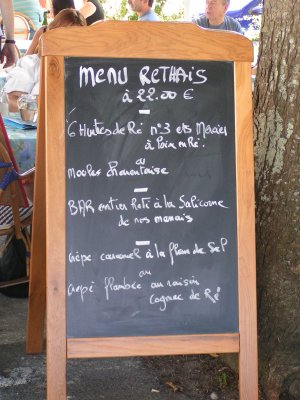 MENU RETHAIS
à 22.00 €
6 Huitres de Ré n°3 et
à Loix en Ré.
ou
Moules Charentaise
BAR entier Roti à la Salicorne
de nos marais
Crèpe caramel à la fleur de Sel
ou
Crepe flambée au raisin
Cognac de Ré